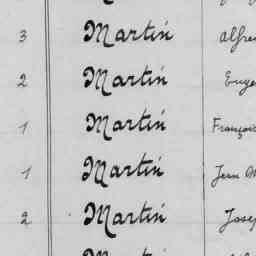 3 Martin Alfre
2 Martin Euge
1 Martin François
1 Martin Jean M
2 Martin Jose
Martin